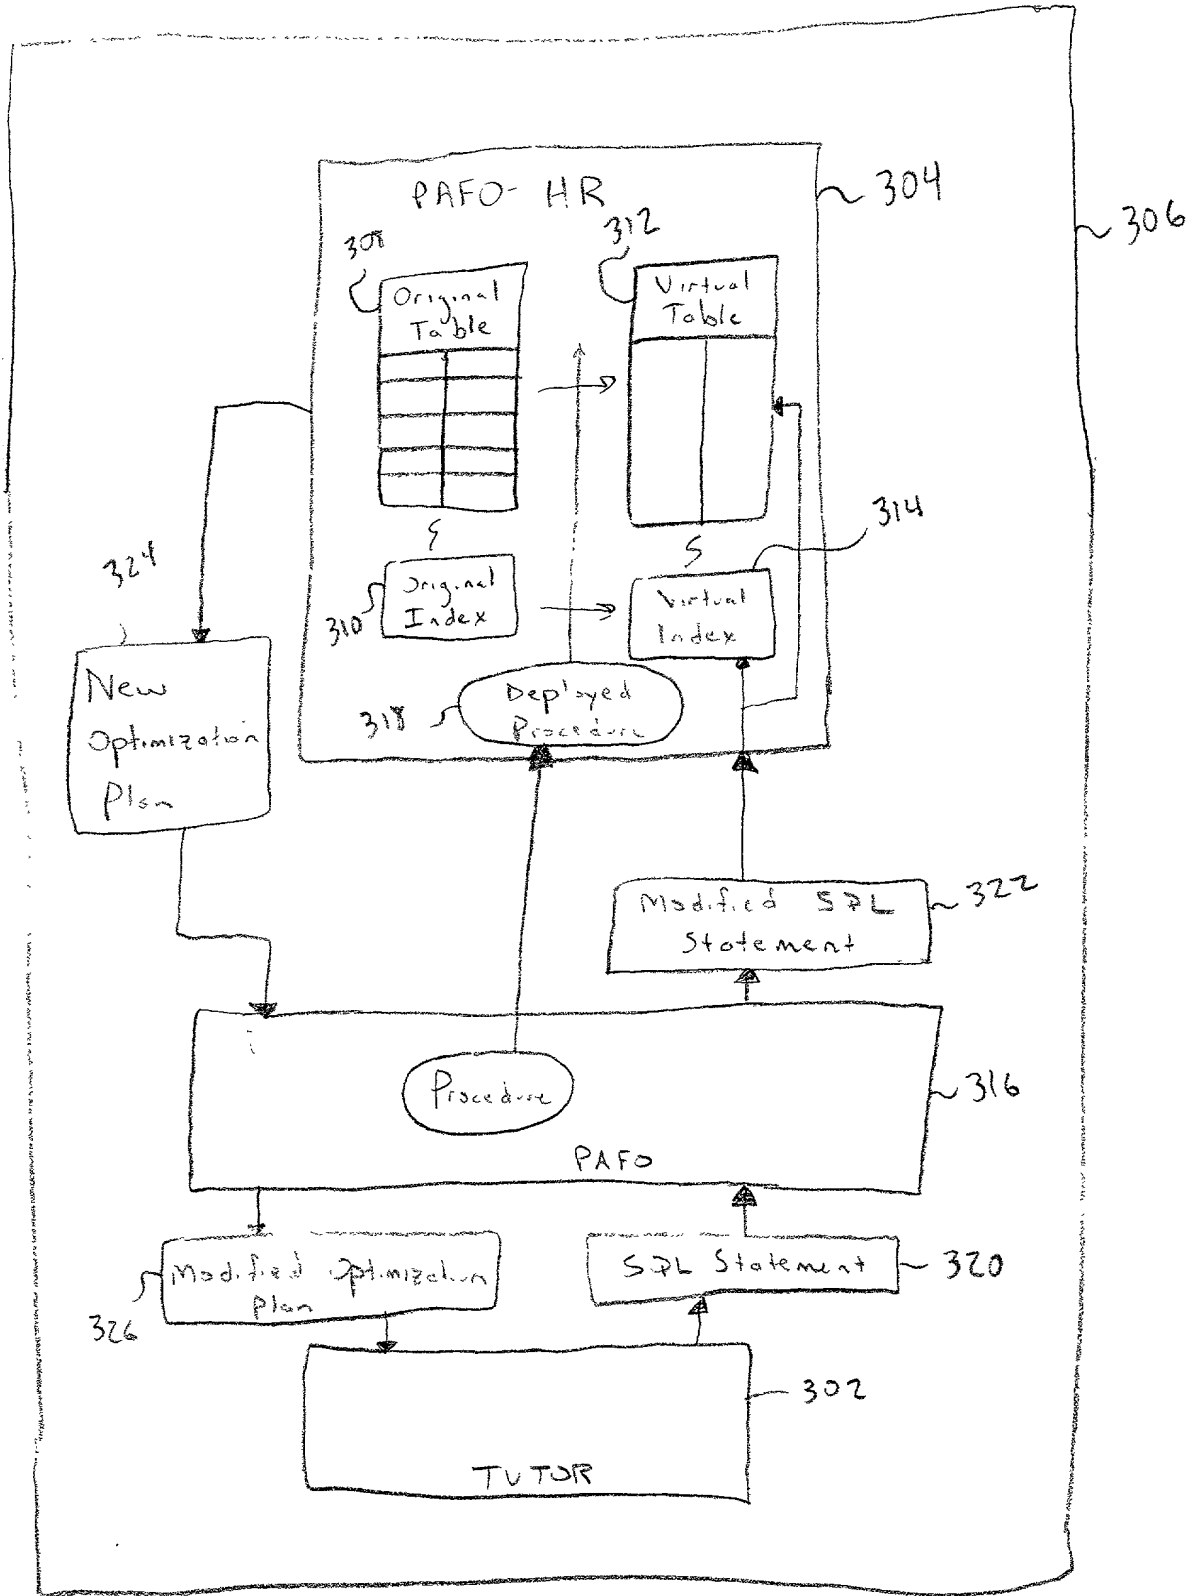 304
306
PAFO-HR
308
312
Original
Table
Virtual
Table
314
324
310
Original
Index
Virtual
Index
318
Deployed
Procedure
New
Optimization
Plan
322
Modified SQL
Statement
316
Procedure
PAFO
Modified Optimization
Plan
326
SQL Statement
320
302
TUTOR